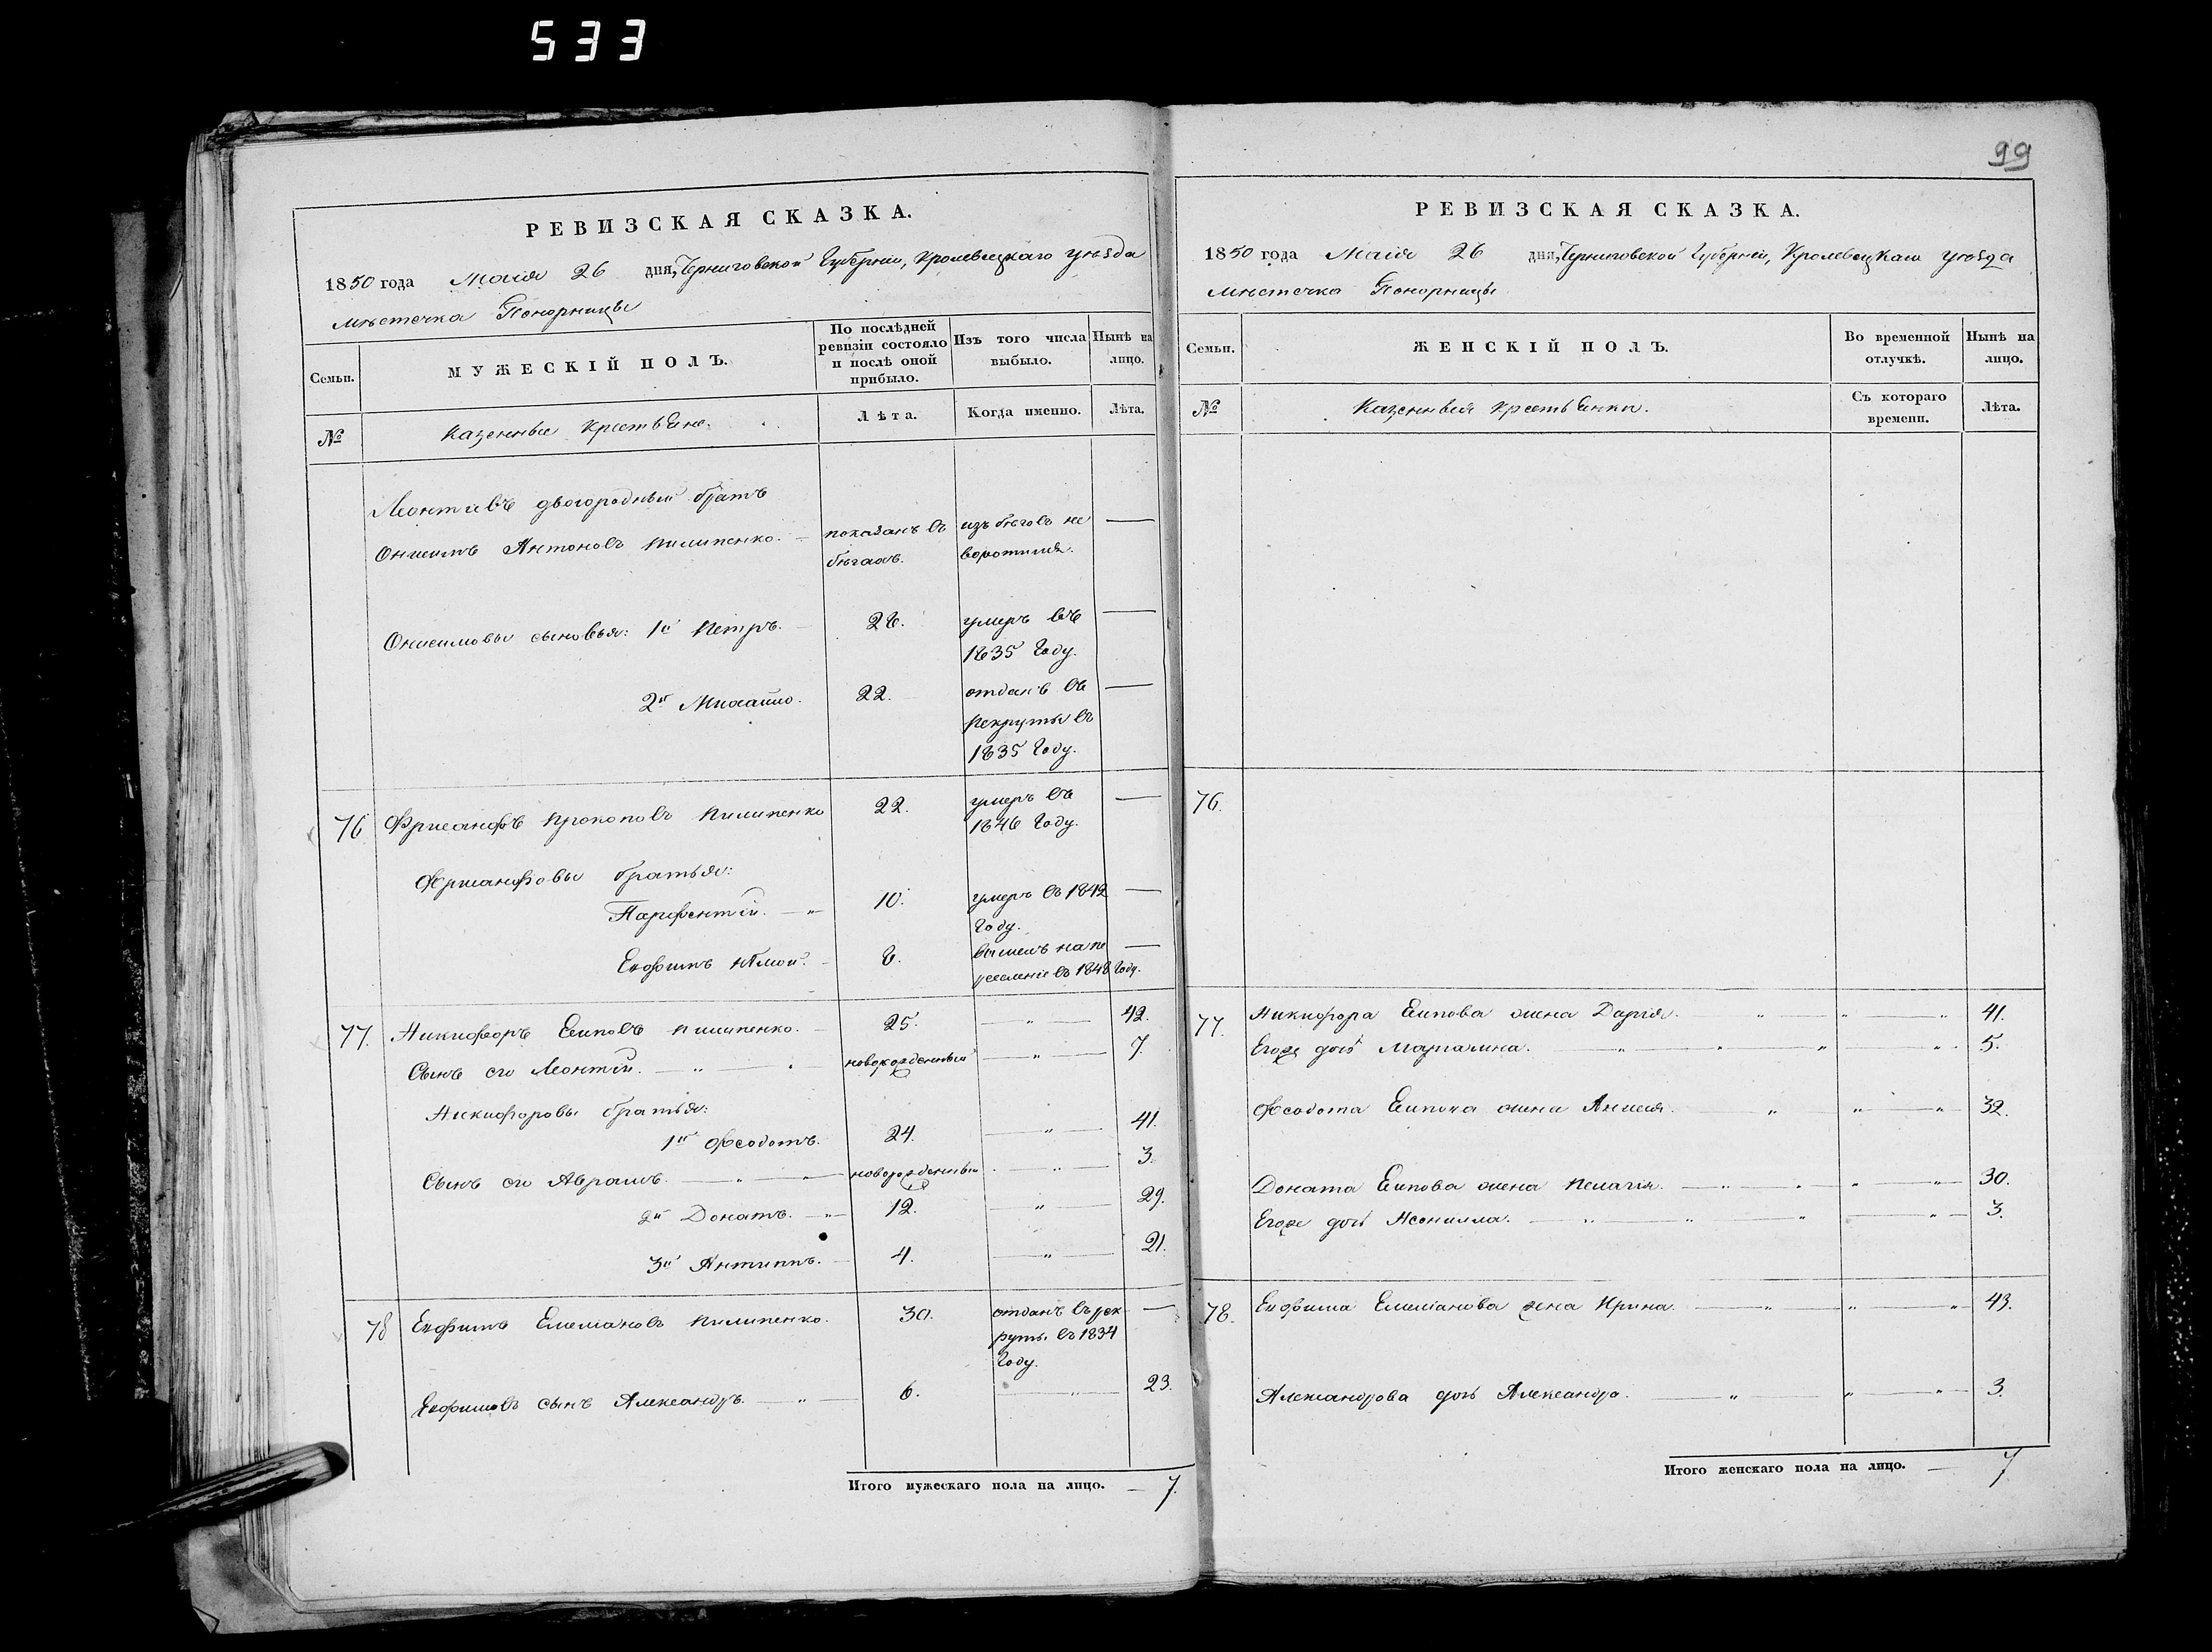 533
99
РЕВИЗСКАЯ СКАЗКА.
1850 года Маія 26 дня, Черниговской Губерніи, Кролевецкаго уѣзда
мѣстечка Понорницы
Семьи.
МУЖЕСКІЙ ПОЛЪ.
По послѣдней ревизіи состояло и послѣ оной прибыло.
Изъ того числа выбыло.
Нынѣ на лицо.
№
Казенные Крестьяне.
Лѣта.
Когда именно.
Лѣта.
Леонтіевъ двоюродный братъ
Онисимъ Антоновъ Пилипенко. — показанъ въ бѣгахъ. изъ бѣговъ не воротился. —
Онисимовы сыновья: 1й Петръ. — 28. умеръ въ 1835 Году. —
2й Михайло. 22. отданъ въ Рекруты въ 1835 Году. —
76 Прокоповъ Пилипенко 22. умеръ въ 1846 Году. —
братья:
Парфентій. — " 10. умеръ въ 1842 Году. —
Ехфимъ 8. вышелъ на пе реселеніе въ 1848 Году. —
77. Никифоръ Еиповъ Пилипенко. — 25. — " — 42.
Сынъ его Леонтій. — " — новорожденный — " — 7.
Никифоровы братья:
1й Фсодотъ. 24. — " — 41.
Сынъ его Аврамъ. — " — " новорожденный — " — 3.
2й Донатъ. — " — 12. " — 29.
3й Антиппъ. — 4. — " — 21.
78 Ехфимъ Емеліановъ Пилипенко. 30. отданъ въ рек руты въ 1834 Году. —
Ехфимовъ сынъ Александръ. — " — 6. — " — 23.
Итого мужескаго пола на лицо. — 7.
РЕВИЗСКАЯ СКАЗКА.
1850 года Маія 26 дня, Черниговской Губерніи, Кролевецкаго уѣзда
мѣстечка Понорницы
Семьи.
ЖЕНСКІЙ ПОЛЪ.
Во временной отлучкѣ.
Нынѣ на лицо.
№
Казенныя Крестьянки.
Съ котораго времени.
Лѣта.
76.
77. Никифора Еипова жена Дарія. " — " — " 41.
Егоже дочь Марталина. " " " " 5.
Фсодота Еипова жена Анисія. " " — " 32.
Доната Еипова жена Пелагія. — " — " " — " 30.
Егоже дочь Неонилла. — " — " — " — " 3.
78. Ехфима Емеліанова жена Ирина. — " — " " 43.
Александрова дочь Александра. — " — " — " 3.
Итого женскаго пола на лицо. — 7